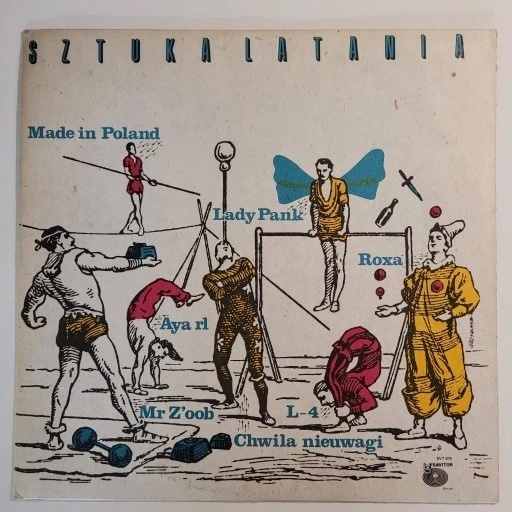 SZTUKA LATANIA
Made in Poland
Lady Pank
Roxa
Aya rl
Mr Z'oob
L-4
Chwila nieuwagi
SAVITOR